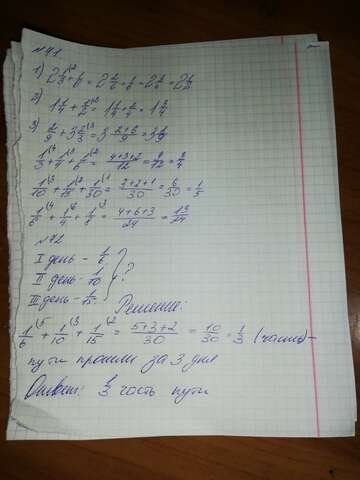 №71
1) 2 1/3 + 1/6 = 2 2/6 + 1/6 = 2 3/6 = 2 1/2
2) 1 1/4 + 1/2 = 1 1/4 + 2/4 = 1 3/4
3)
1/3 + 1/4 + 1/6 = 4+3+2/12 = 9/12 = 3/4
1/10 + 1/15 + 1/30 = 3+2+1/30 = 6/30 = 1/5
1/6 + 1/4 + 1/8 = 4+6+3/24 = 13/24
№72
I день - 1/6
II день - 1/10 ?
III день - 1/15
Решение:
1/6 + 1/10 + 1/15 = 5+3+2/30 = 10/30 = 1/3 (часть) -
пути прошли за 3 дня
Ответ: 1/3 часть пути